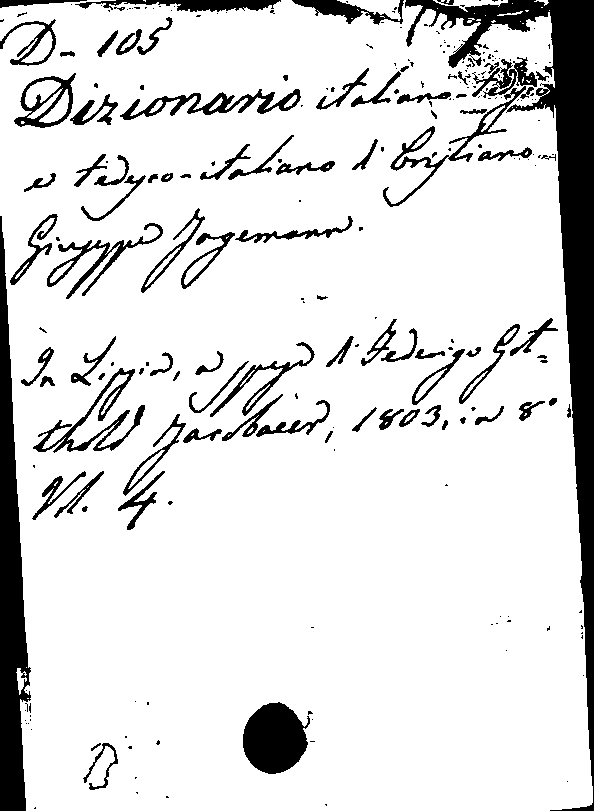 D- 105
Dizionario italiano-tedesco
e tedesco-italiano di Cristiano
Giuseppe Jagemann.
In Lipsia, a spese di Federigo Got=
thold Jacobaeer, 1803, in 8°
Vol. 4.
D